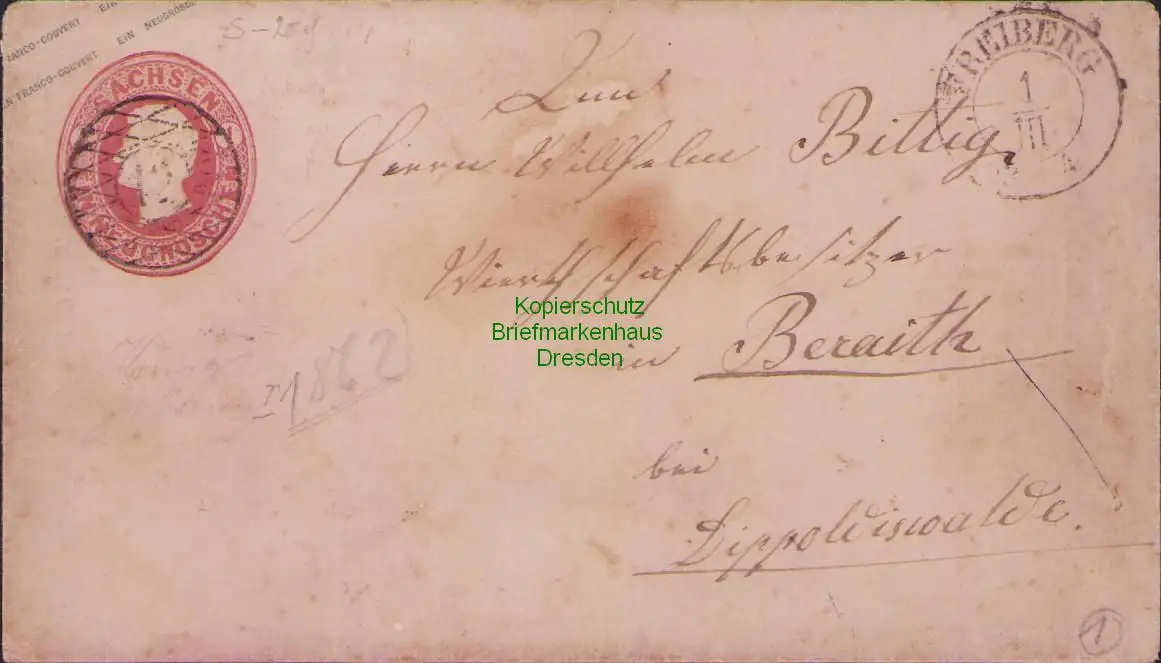 FRANCO-COUVERT EIN
EIN FRANCO-COUVERT EIN NEUGROSC
SACHSEN
FREIBERG
1
III
Herrn Willhelm Bittig
Wierthschaftsbesitzer
in Beraith
bei
Dippoldiswalde.
1862
Kopierschutz
Briefmarkenhaus
Dresden
1